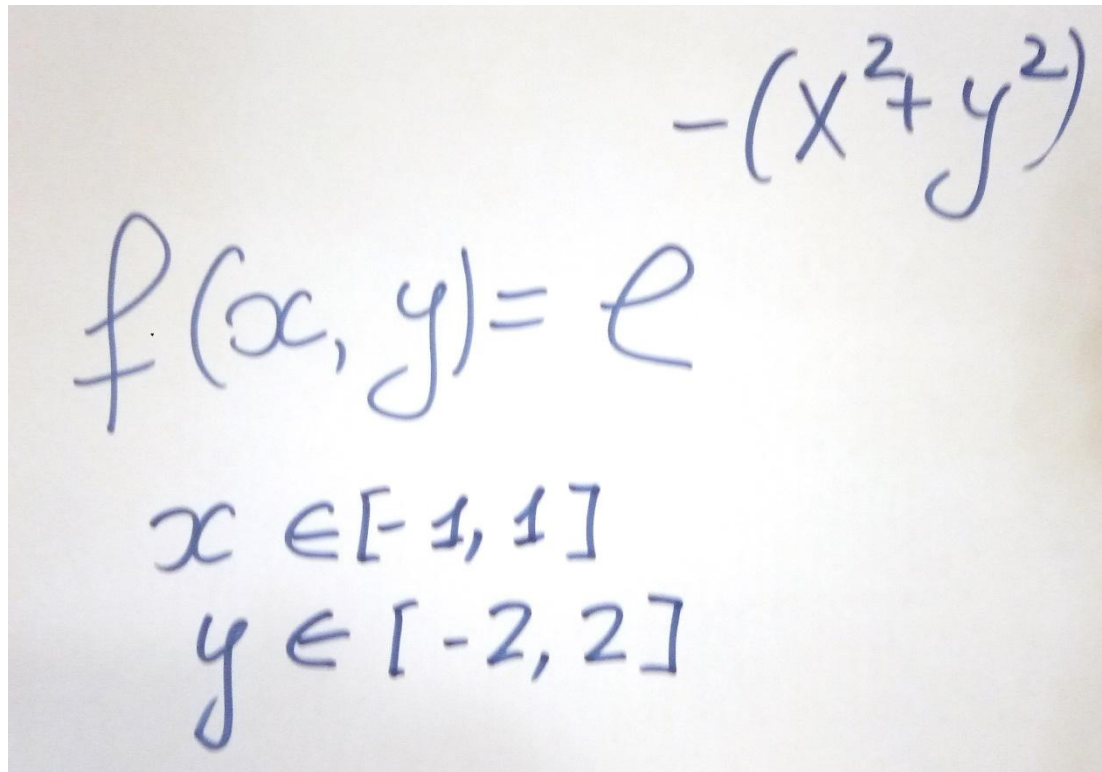 f(x, y) = e^{-(x^2+y^2)}
x ∈ [-1, 1]
y ∈ [-2, 2]